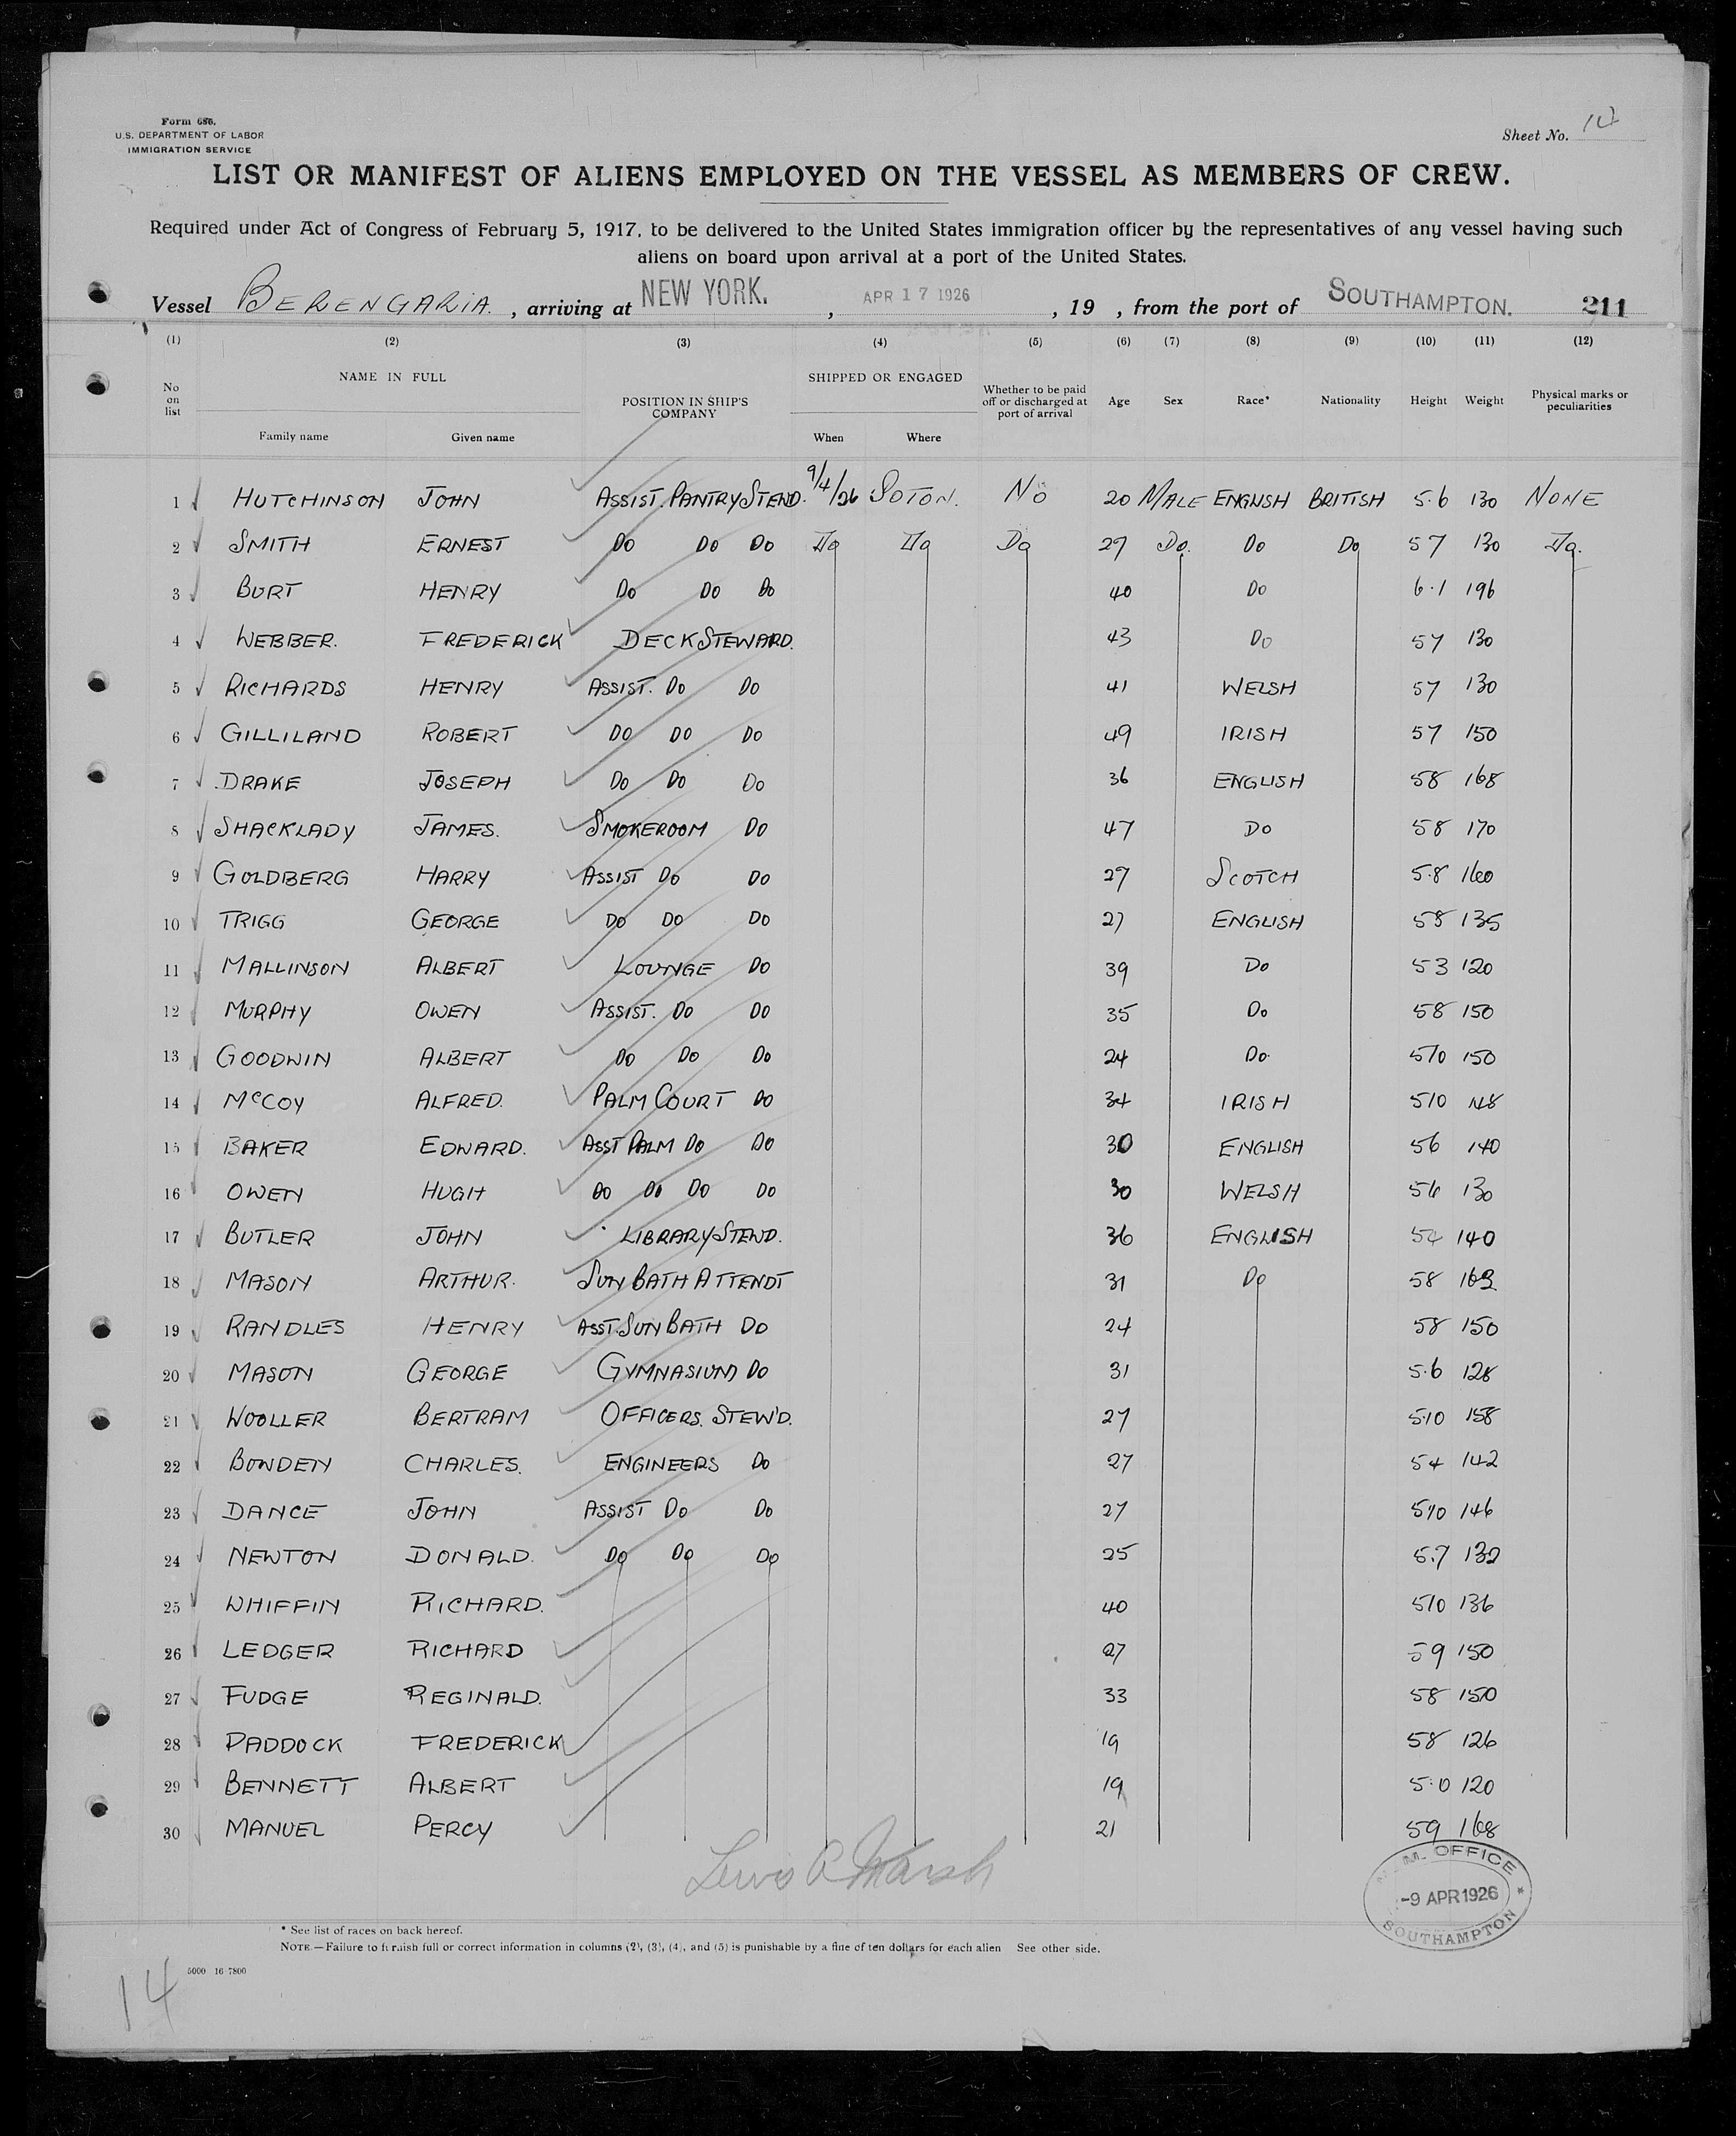 Form 686.
U.S. DEPARTMENT OF LABOR
IMMIGRATION SERVICE
Sheet No. 14
LIST OR MANIFEST OF ALIENS EMPLOYED ON THE VESSEL AS MEMBERS OF CREW.
Required under Act of Congress of February 5, 1917, to be delivered to the United States immigration officer by the representatives of any vessel having such
aliens on board upon arrival at a port of the United States.
Vessel BERENGARIA. , arriving at NEW YORK. , APR 17 1926 , 19 , from the port of SOUTHAMPTON. 211
(1) (2) (3) (4) (5) (6) (7) (8) (9) (10) (11) (12)
No on list NAME IN FULL Family name Given name POSITION IN SHIP'S COMPANY SHIPPED OR ENGAGED When Where Whether to be paid off or discharged at port of arrival Age Sex Race* Nationality Height Weight Physical marks or peculiarities
1 HUTCHINSON JOHN ASSIST. PANTRY STEWD. 9/4/26 SOTON. NO 20 MALE ENGLISH BRITISH 5.6 130 NONE
2 SMITH ERNEST DO DO DO Do Do Do 27 Do. Do Do 57 130 Do.
3 BURT HENRY DO DO DO 40 DO 6.1 196
4 WEBBER. FREDERICK DECK STEWARD. 43 DO 57 130
5 RICHARDS HENRY ASSIST. DO DO 41 WELSH 57 130
6 GILLILAND ROBERT DO DO DO 49 IRISH 57 150
7 DRAKE JOSEPH DO DO DO 36 ENGLISH 58 168
8 SHACKLADY JAMES. SMOKEROOM DO 47 DO 58 170
9 GOLDBERG HARRY ASSIST DO DO 27 SCOTCH 5.8 160
10 TRIGG GEORGE DO DO DO 27 ENGLISH 58 135
11 MALLINSON ALBERT LOUNGE DO 39 DO 53 120
12 MURPHY OWEN ASSIST. DO DO 35 DO 58 150
13 GOODWIN ALBERT DO DO DO 24 DO. 510 150
14 McCOY ALFRED. PALM COURT DO 34 IRISH 510 148
15 BAKER EDWARD. ASST PALM DO DO 30 ENGLISH 56 140
16 OWEN HUGH DO DO DO DO 30 WELSH 56 130
17 BUTLER JOHN LIBRARY STEWD. 36 ENGLISH 54 140
18 MASON ARTHUR. SUN BATH ATTENDT 31 DO 58 163
19 RANDLES HENRY ASST. SUN BATH DO 24 58 150
20 MASON GEORGE GYMNASIUM DO 31 5.6 128
21 WOOLLER BERTRAM OFFICERS. STEW'D. 27 5.10 158
22 BOWDEN CHARLES. ENGINEERS DO 27 54 142
23 DANCE JOHN ASSIST DO DO 27 510 146
24 NEWTON DONALD. DO DO DO 25 5.7 132
25 WHIFFIN RICHARD. 40 510 136
26 LEDGER RICHARD 27 59 150
27 FUDGE REGINALD. 33 58 150
28 PADDOCK FREDERICK 19 58 126
29 BENNETT ALBERT 19 5.0 120
30 MANUEL PERCY 21 59 168
Marsh
M. M. OFFICE
-9 APR 1926 *
SOUTHAMPTON
* See list of races on back hereof.
NOTE.—Failure to furnish full or correct information in columns (2), (3), (4), and (5) is punishable by a fine of ten dollars for each alien See other side.
5000 16-7800
14